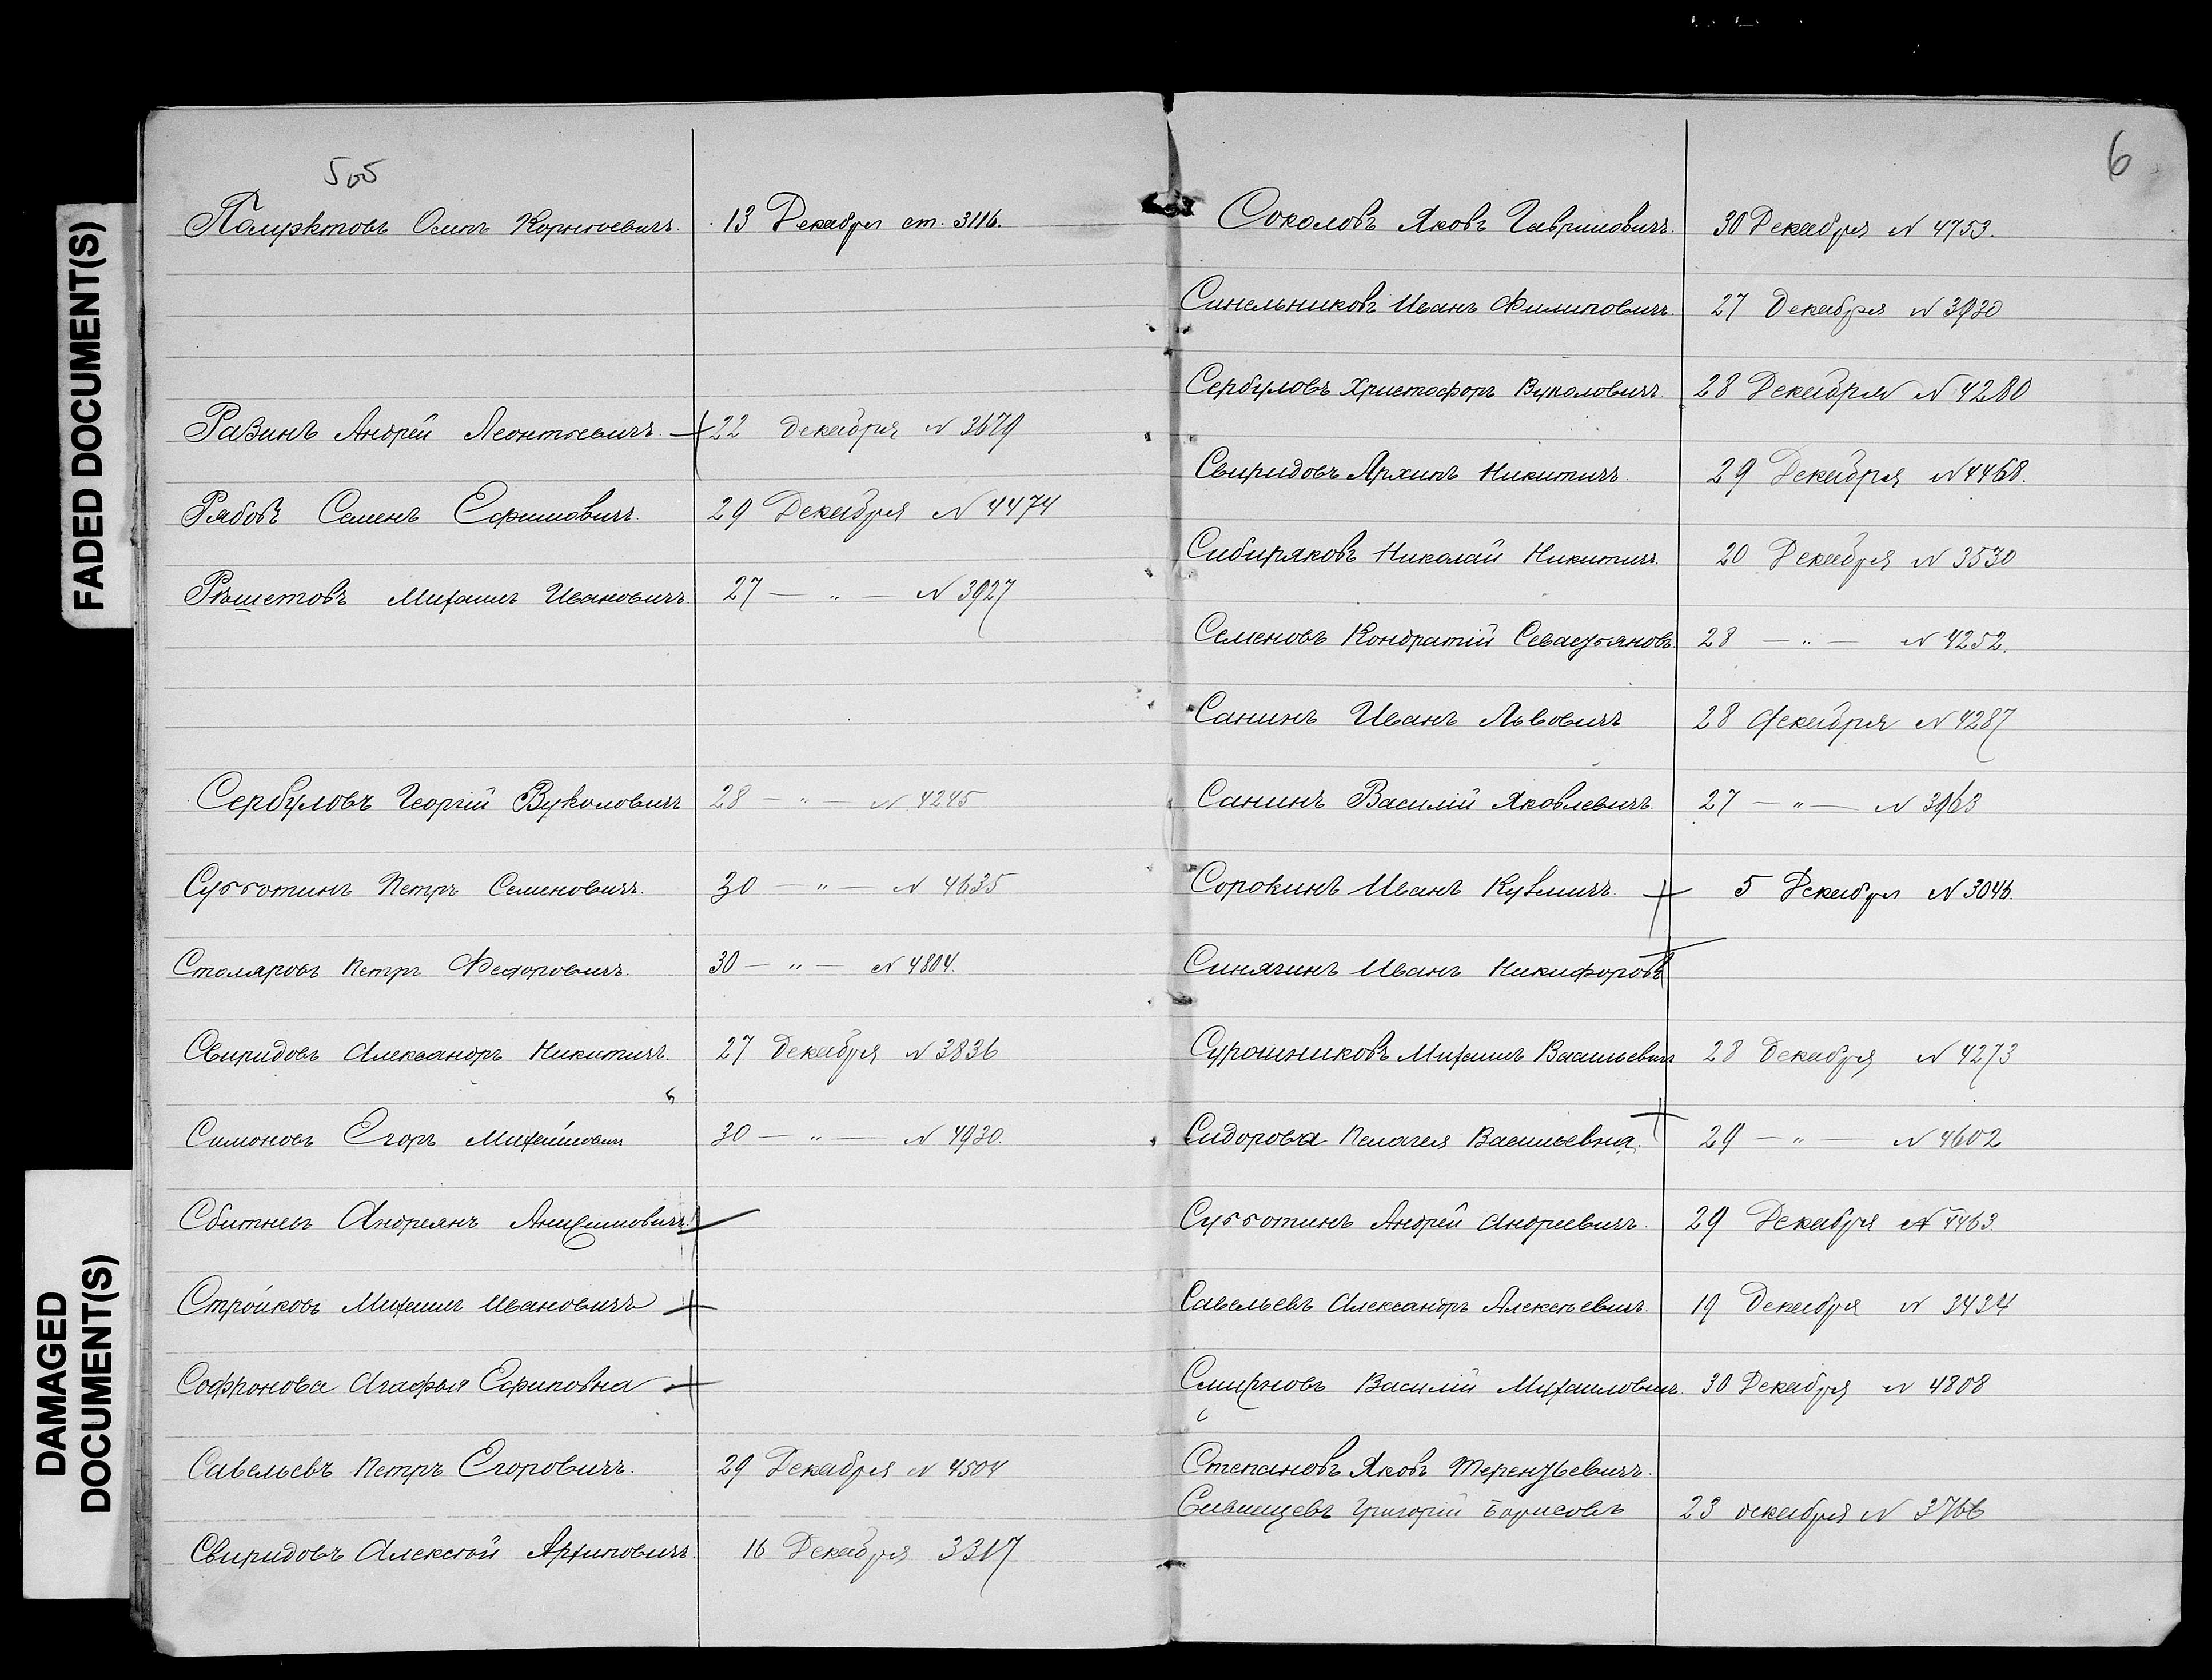 FADED DOCUMENT(S)
DAMAGED
DOCUMENT(S)
505
Полуэктовъ Осипъ Корнѣевичъ. 13 Декабря ст. 3116.
Разинъ Андрей Леонтьевичъ. + 22 Декабря N 3679
Рябовъ Семенъ Ефимовичъ. 29 Декабря N 4474
Рѣшетовъ Михаилъ Ивановичъ. 27 — „ — N 3927
Сербуловъ Георгій Вуколовичъ 28 — „ — N 4245
Субботинъ Петръ Семеновичъ. 30 — „ — N 4635
Столяровъ Петръ Федоровичъ. 30 — „ — N 4804.
Свиридовъ Александръ Никитичъ. 27 Декабря N 3836
Симоновъ Егоръ Михайловичъ 30 — „ — N 4930.
Сбитневъ Андреянъ +
Стройковъ Михаилъ Ивановичъ +
Софронова Агафья +
Савельевъ Петръ Егоровичъ. 29 Декабря N 4504
Свиридовъ Алексѣй Архиповичъ. 16 Декабря 3317
6
Соколовъ Яковъ Гавриловичъ. 30 Декабря N 4753.
Синельниковъ Иванъ Филиповичъ. 27 Декабря N 3930
Сербуловъ Христофоръ Вуколовичъ 28 Декабря N 4280
Свиридовъ Архипъ Никитичъ. 29 Декабря N 4468.
Сибиряковъ Николай Никитичъ. 20 Декабря N 3530
Семеновъ Кондратій Севастьяновъ. 28 — „ — N 4252.
Санинъ Иванъ Львовичъ 28 Декабря N 4287
Санинъ Василій Яковлевичъ. 27 — „ — N 3963
Сорокинъ Иванъ Кузмичъ. + 5 Декабря N 3046.
Синягинъ Иванъ Никифоровъ +
Михаилъ Васильевичъ 28 Декабря N 4273
Сидорова Пелагея Васильевна. + 29 — „ — N 4602
Субботинъ Андрей Андреевичъ. 29 Декабря N 4463.
Савельевъ Александръ Алексѣевичъ. 19 Декабря N 3434
Смирновъ Василій Михаиловичъ. 30 Декабря N 4808
Степановъ Яковъ Терентьевичъ.
Григорій Борисовъ 23 декабря N 3766